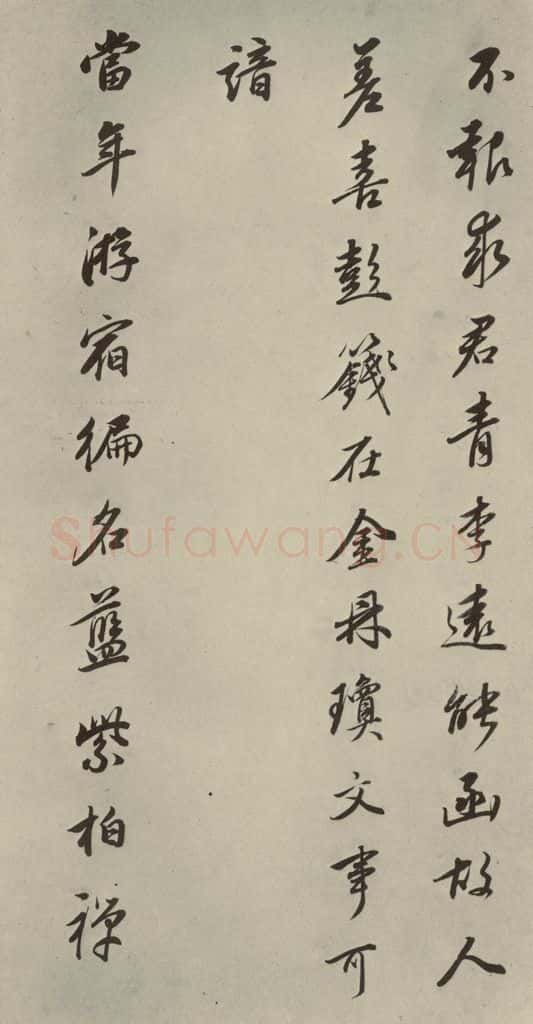 不艱求君青李遠能函故人
差喜彭籛在金丹瓊文事可
諳
當年游宿徧名藍紫柏禪
Shufawang.CN